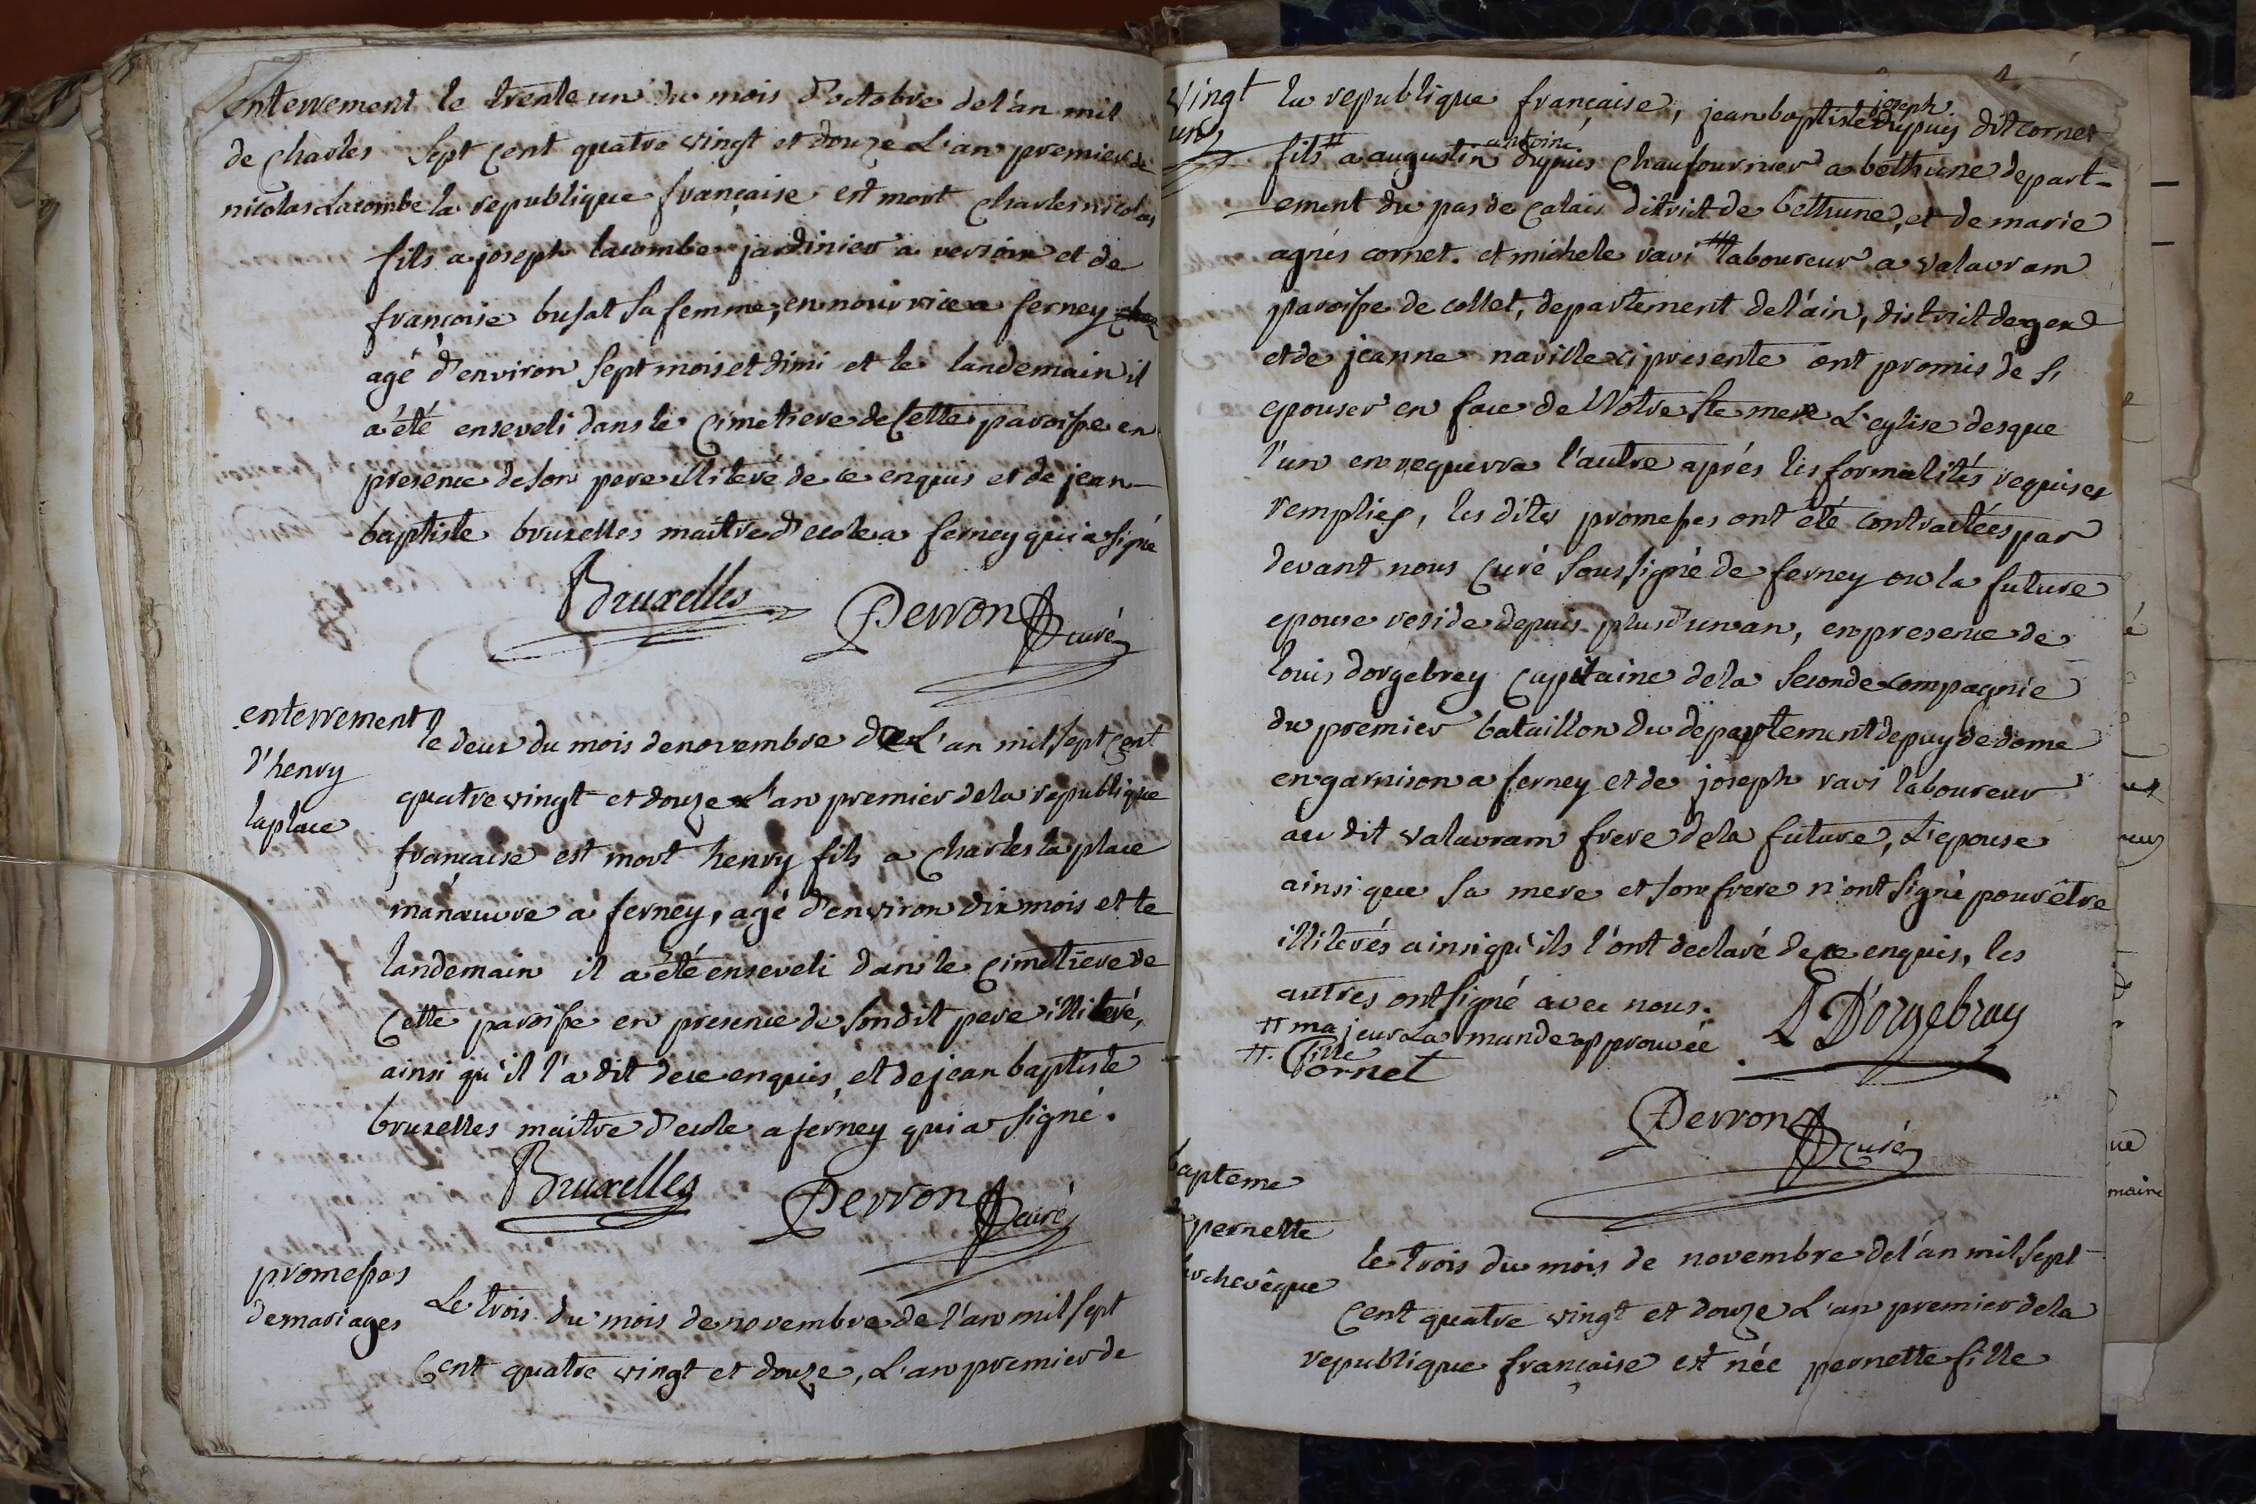 enterrement le trente un du mois d'octobre de l'an mil
de charles sept cent quatre vingt et douze L'an premier de
nicolas Lacombe la republique française est mort charles nicolas
fils a joseph lacombe jardinier a versoix et de
françoise busat sa femme, en nourrice a ferney chez
agé d'environ sept mois et dimi et le landemain il
a été enseveli dans le cimetiere de cette paroisse en
presence de son pere illiteré de ce enquis et de jean
baptiste bruxelles maitre d'ecole a ferney qui a signé
Bruxelles Perron curé
enterrement
d'henry
laplace
le deux du mois de novembre de L'an mil sept cent
quatre vingt et douze L'an premier de la republique
française est mort henry fils a charles la place
manœuvre a ferney, agé d'environ dix mois et le
landemain il a été enseveli dans le cimetiere de
cette paroisse en presence de son dit pere illiteré,
ainsi qu'il l'a dit de ce enquis, et de jean baptiste
bruxelles maitre d'ecole a ferney qui a signé.
Bruxelles Perron curé
promesses
de mariages
Le trois du mois de novembre de l'an mil sept
cent quatre vingt et douze, L'an premier de
vingt
un
joseph
la republique française, jean baptiste dupuis dit cornet
antoine
fils # a augustin dupuis chaufournier a bethune depart-
ement du pas de calais ditrict de bethune, et de marie
agnés cornet. et michele ravi # laboureur a valavram
paroisse de collet, departement de l'ain, district de gex
et de jeanne naville ci presente ont promis de s,
epouser en face de Notre ste mere L'eglise desque
l'un en requerra l'autre aprés les formalités requises
remplies, les dites promesses ont été contractées par
devant nous curé soussigné de ferney ou la future
epouse reside depuis plus d'un an, en presence de
louis dorgebray capitaine de la seconde compagnie
du premier bataillon du departement de puy de dome
en garnison a ferney et de joseph ravi laboureur
au dit valavram frere de la future, L'epouse
ainsi que sa mere et son frere n'ont signé pour être
illiterés ainsi qu'ils l'ont declaré de ce enquis, les
autres ont signé avec nous.
# majeur La mande approuvée
#. fille
Cornet
L D'orgebray
Perron curé
bapteme
pernette
archevêque
le trois du mois de novembre de l'an mil sept
cent quatre vingt et douze L'an premier de la
republique française est née pernette fille